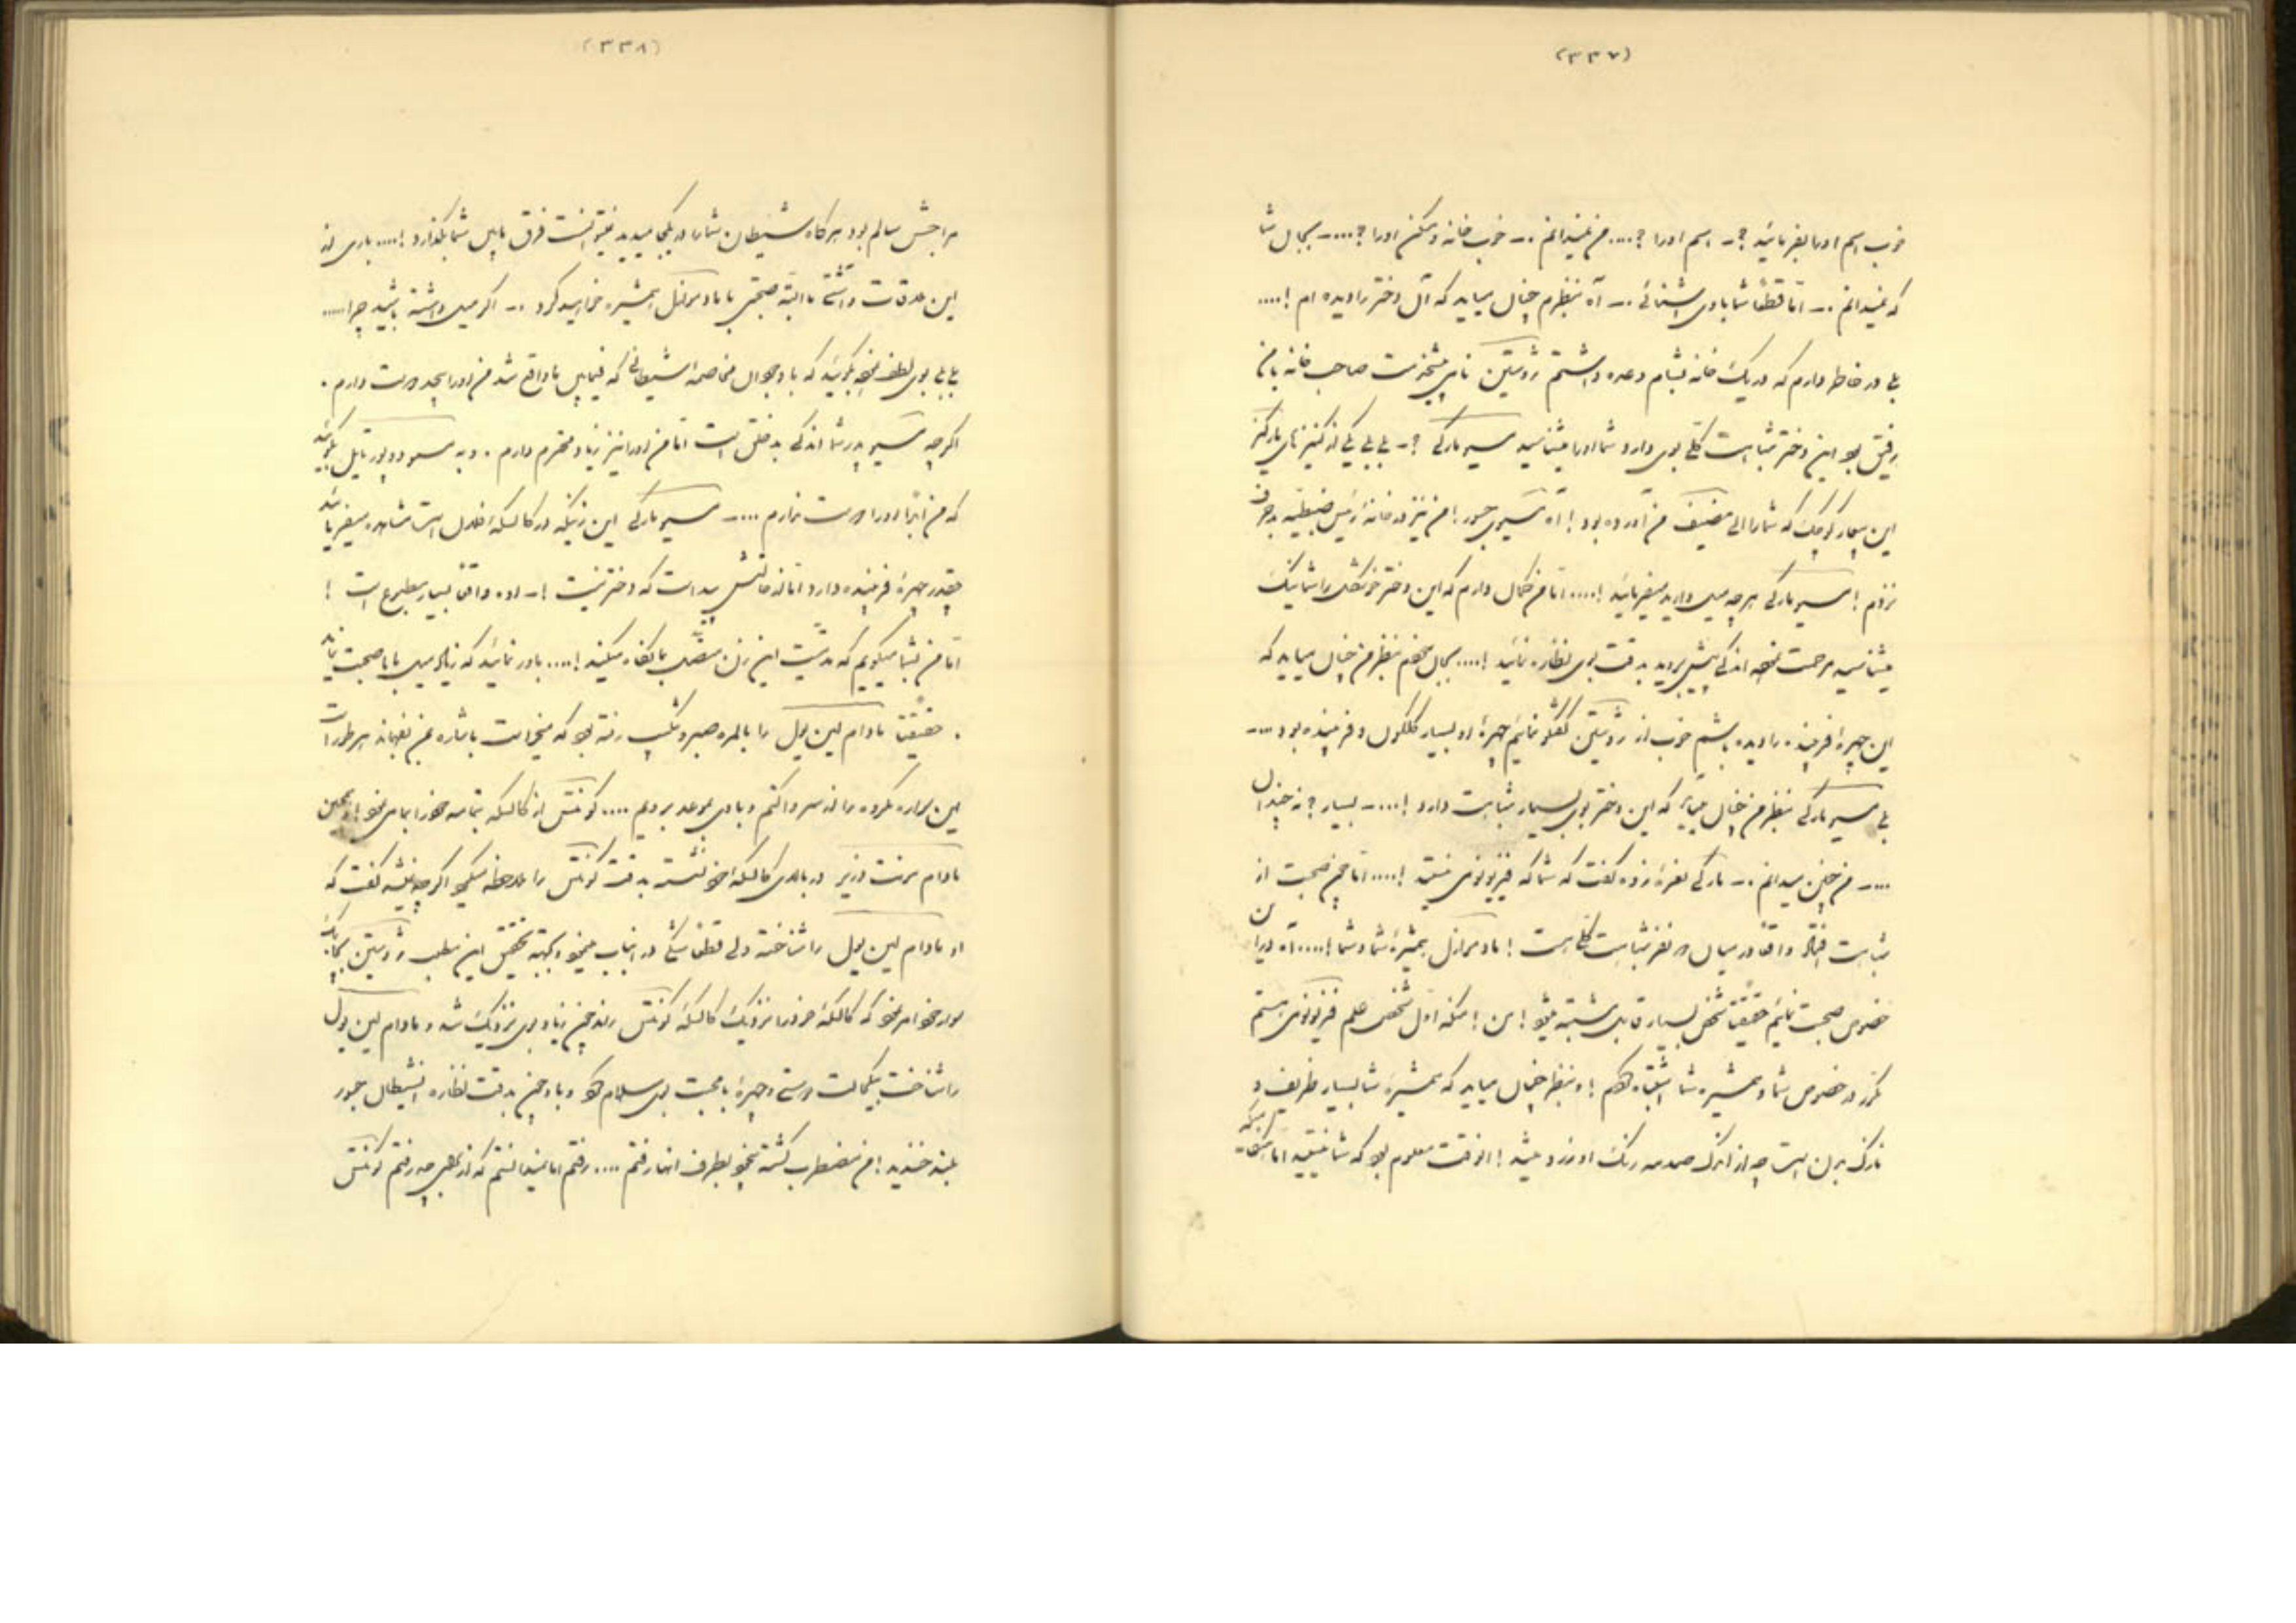 (۳۳۷)
خوب اسم او را بفرمائید ؟- اسم او را ؟.... من نمیدانم .-- خوب خانه و مسکن او را ؟....- بحال شما
که نمیدانم .-- اما قطعاً شما با وی آشنائی .-- آه بنظرم خیال میاید که آن دختر را دیده ام !....
بلی در خاطر دارم که در یک خانه بشام وعده داشتم ژوستین نامی پیشخدمت صاحب خانه با من
رفیق بود این دختر شباهت کلی بوی دارد شما او را میشناسید مسیو مارکی ؟- بلی بلی یکی از کنیزهای
این بیمار کوچک که شما را الی مضیف من آورده بود ! آه مسیوی جسور ! من نیز در خانه رئیس ضبطیه
نزدم ! مسیو مارکی هرچه میل دارید میفرمائید !.... اما من گمان دارم که این دختر خوشگل را شما نیک
میشناسید مرحمت نموده اندکی پیش بروید بدقت بوی نظاره نمائید !.... بحال خودم بنظر من خیال میاید که
این چهرهٔ فریبنده را دیده باشم خوب از ژوستین گفتگو نمائیم چهرهٔ او بسیار گلگون و فریبنده بود ....-
بلی مسیو مارکی بنظر من خیال میاید که این دختر بوی بسیار شباهت دارد !....- بسیار ؟ نه چندان
....- من چنین میدانم .-- مارکی نعره زده گفت که شما که فیزیونومی نیستید !.... اما چون صحبت از
شباهت افتاد واقعاً در میان دو نفر شباهت کلی هست ! مادموازل همشیرهٔ شما و شما !.... آه در این
خصوص صحبت نمائیم حقیقتاً شخص بسیار قابل مشتبه میشود ! من ! منکه اول شخص علم فیزیونومی هستم
مکرر در خصوص شما و همشیره شما اشتباه کردم ! و بنظرم خیال میاید که همشیرهٔ شما بسیار ظریف و
نازک بدن است چه از اندک صدمه رنگ او زرد میشد ! آنوقت معلوم بود که شما نیستید اما
(۳۳۸)
مزاجش سالم بود هرگاه شیطان شما را در یکجا میدید نمیتوانست فرق مابین شما بگذارد !.... باری از
این ملاقات داشتی ما البته صحبتی با مادموازل همشیره خواهید کرد .-- اگر میل داشته باشید چرا .....
بلی بلی بوی لطف نموده بگوئید که با وجود آن مخاصمه شیطانی که فیمابین ما واقع شد من او را بیحد دوست دارم .
اگرچه مسیو پدر شما اندکی بدخلق است اما من او را نیز زیاد محترم دارم . و به مسیو دوپورتایل بگوئید
که من ابداً او را دوست ندارم ....- مسیو مارکی این زنیکه در کالسکه خلوت است مشاهده میفرمائید
چقدر چهرهٔ فریبنده دارد اما از حالتش پیداست که دختر نیست !- اوه واقعاً بسیار مطبوع است !
اما من بشما میگویم که مدتیست این زن متصل بما نگاه میکند !.... باور نمائید که زیاد میل با ما صحبت نماید
. حقیقتاً مادام لین یول را بالمره صبر و شکیب رفته بود که میخواست با اشاره بمن بفهماند هرطور است
این بیچاره نکرده را از سر وا کنم و با وی بموعد برویم .... کونتس از کالسکه بتمامه خود را بما می نمود ! و همین
مادام مونت دزیر در بالای کالسکه خود نشسته بدقت کونتس را ملاحظه میکرد اگرچه همیشه گفت که
او مادام لین یول را شناخته ولی قطعاً شکی در این باب مینمود و بجهة تحقیق این مطلب ژوستین
سورجی امر نمود که کالسکهٔ خود را نزدیک کالسکهٔ کونتس راند چون زیاد بوی نزدیک شد و مادام لین یول
را شناخت بیک حالت دوستی و چهرهٔ با محبت بوی سلام کرد و با وجود چنین بدقت نظاره ایشیطان جسور
بلند خندید ! من مضطرب گشته بیخود بطرف آنها رفتم .... رفتم اما نمیدانستم که از برای چه رفتم کونتس